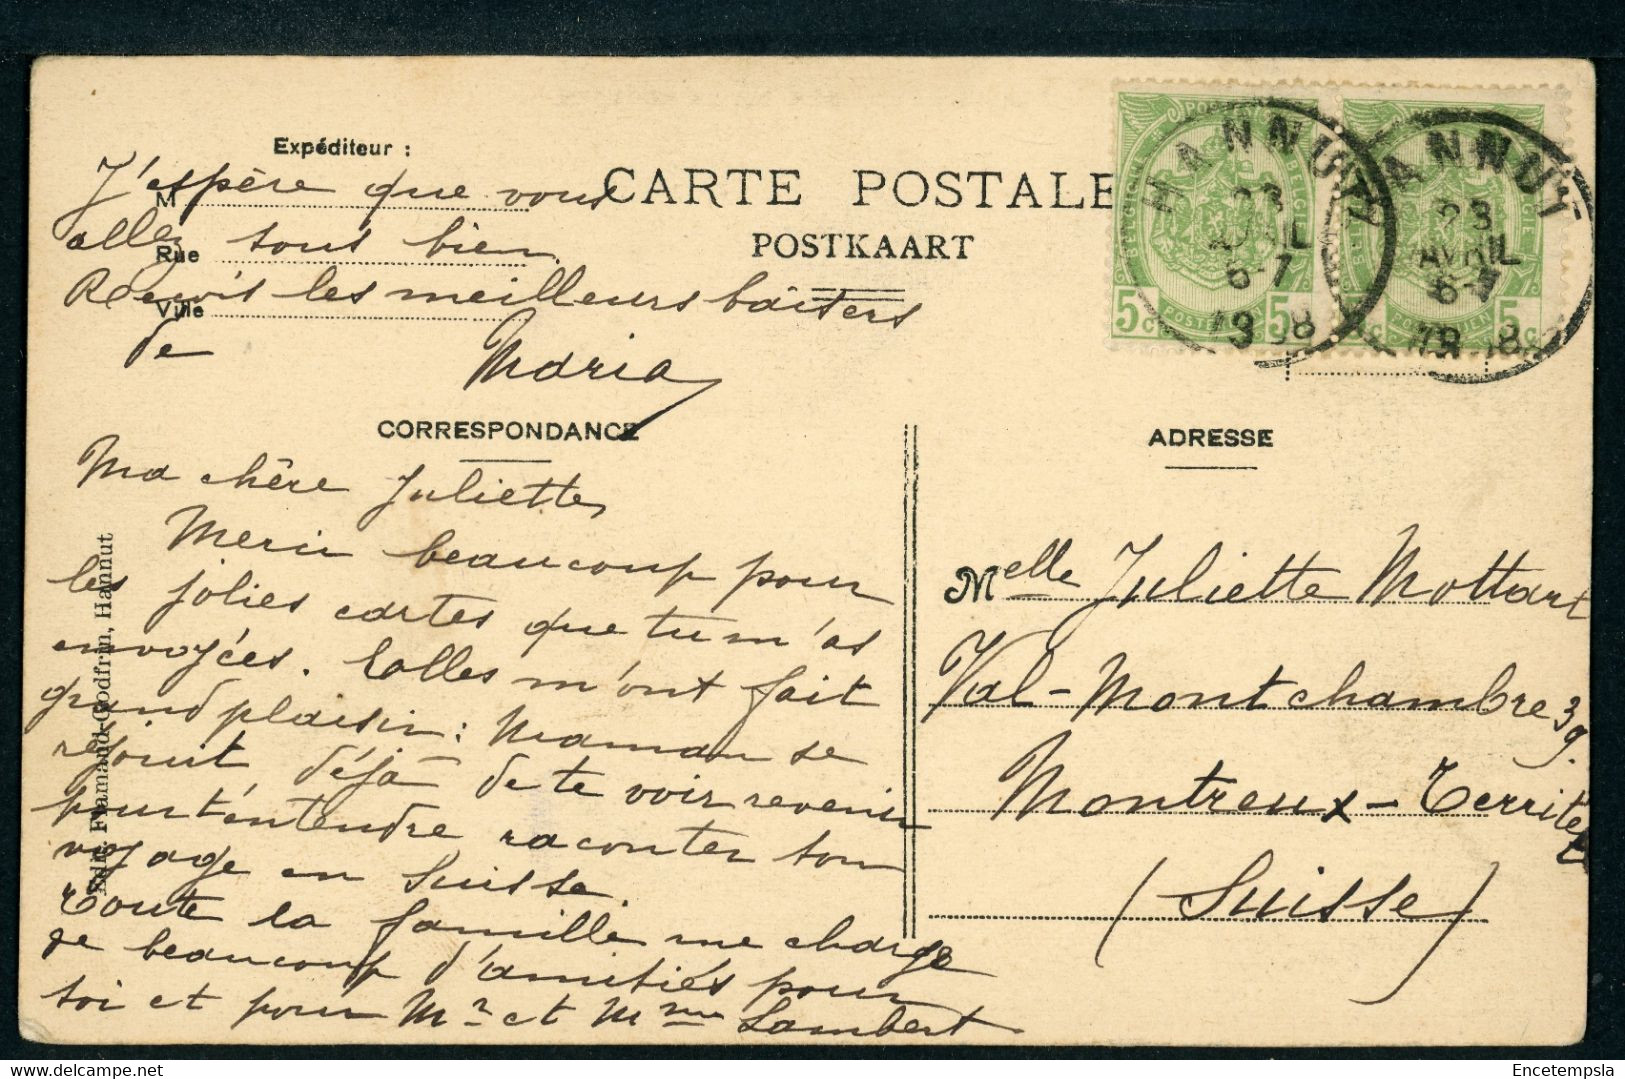 Expéditeur :
M
Rue
Ville
J'espère que vous
allez tous bien.
Reçois les meilleurs baisers
de Maria
CARTE POSTALE
POSTKAART
HANNUT
23
AVRIL
6-7
1908
HANNUT
23
AVRIL
6-7
1908
5c 5c
5c 5c
CORRESPONDANCE
Ma chère Juliette,
Merci beaucoup pour
les jolies cartes que tu m'as
envoyées. Elles m'ont fait
grand plaisir: Maman se
réjouit déjà de te voir revenir
pour t'entendre raconter ton
voyage en Suisse.
Toute la famille me charge
de beaucoup d'amitiés pour
toi et pour Mr et Mme Lambert
Edit. Flamand-Godfrin, Hannut
ADRESSE
Melle Juliette Mottart
Val-Montchambre 39.
Montreux-Territet
(Suisse)
delcampe.net
Encetempsla